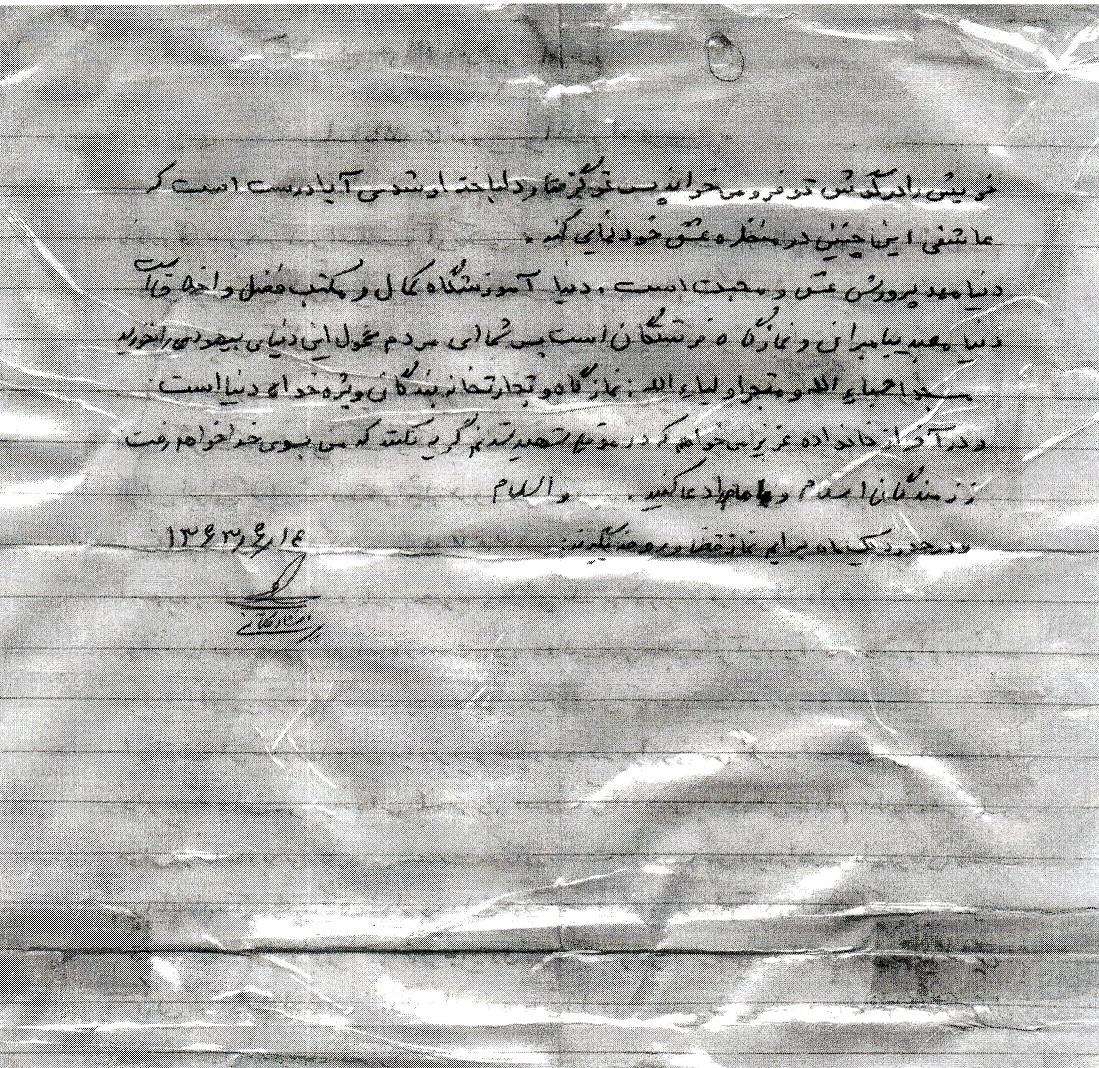 خویش را در گوش تو فرو می خواند پس تو گرفتار و دلباخته او شدی آیا درست است که
عاشقی این چنین در منظره عشق خود نمایی کند .
دنیا مهد پرورش عشق و محبت است . دنیا آموزشگاه کمال و مکتب فضل و اخلاق است
دنیا معبد پیامبران و نمازگاه فرشتگان است پس شما ای مردم گول این دنیای را نخورید
مسجد احباء الله و متجر اولیاء الله : نمازگاه و تجارتخانه بندگان ویژه خدا دنیا است
و در آخر از خانواده عزیز می خواهم که در موقع شهید شدنم گریه نکنند که من بسوی خدا خواهم رفت
رزمندگان اسلام و امام را دعا کنید . والسلام
و در حدود یک ماه برایم نماز قضا و روزه بگیرید.
۱۳۶۳/۶/۱٤